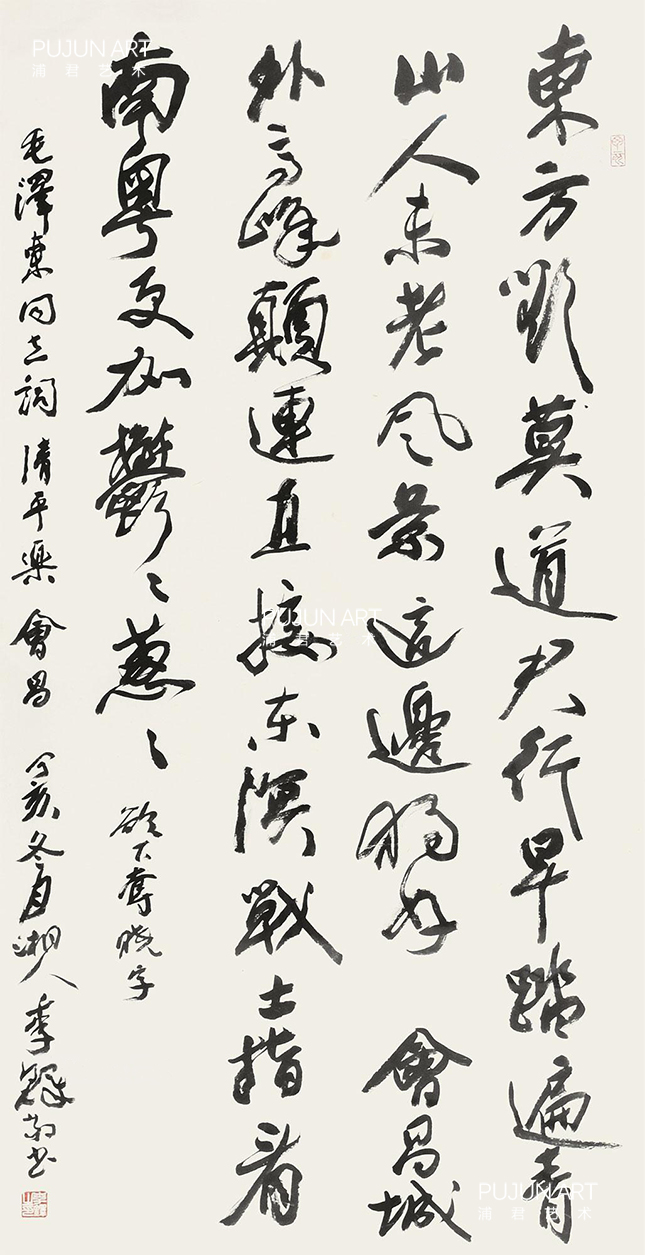 東方欲莫道君行早踏遍青
山人未老風景這邊獨好 會昌城
外高峰顛連直接東溟戰士指看
南粵更加鬱〻蔥〻 欲下奪曉字
毛澤東同志詞 清平樂 會昌 丁亥冬月湘人李鐸書
PUJUN ART
浦君艺术
PUJUN ART
浦君艺术
PUJUN ART
浦君艺术